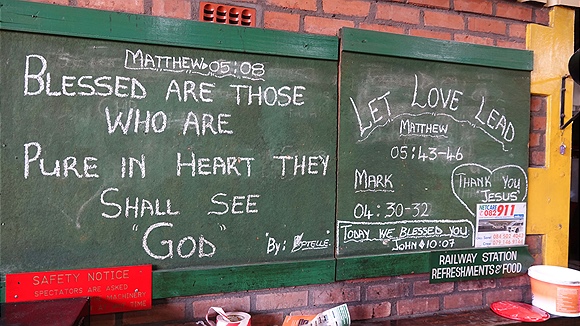 MATTHEW 05:08
BLESSED ARE THOSE
WHO ARE
PURE IN HEART THEY
SHALL SEE
"GOD"
"By:
LET LOVE LEAD
MATTHEW
05:43-46
MARK
04:30-32
THANK YOU
"JESUS"
TODAY WE BLESSED YOU
JOHN 10:07
NETCARE
082 911
SAFETY NOTICE
SPECTATORS ARE ASKED
MACHINERY
TIME
RAILWAY STATION
REFRESHMENTS & FOOD